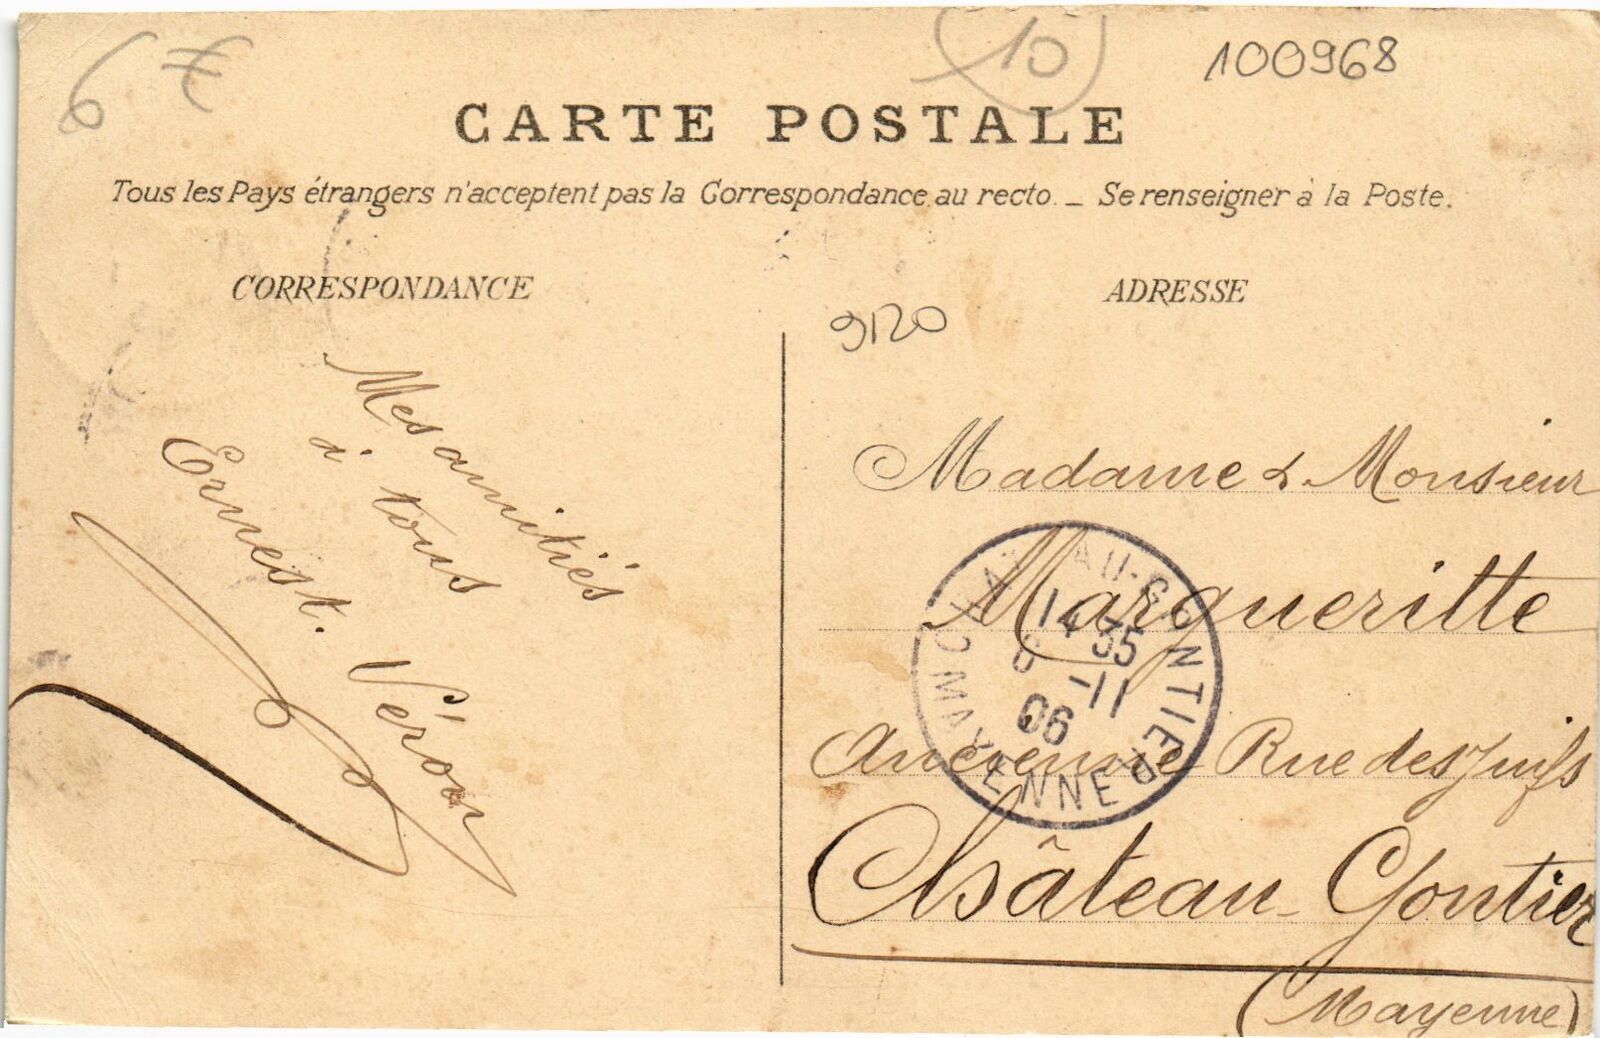 6 €
10
100968
CARTE POSTALE
Tous les Pays étrangers n'acceptent pas la Correspondance au recto. _ Se renseigner à la Poste.
CORRESPONDANCE
ADRESSE
9120
Mes amitiés
à tous
Ernest. Véron
Madame & Monsieur
Margueritte
Ancienne Rue des Juifs
Château-Gontier
(Mayenne)
CHATEAU-GONTIER
14 35
6 -11
06
MAYENNE